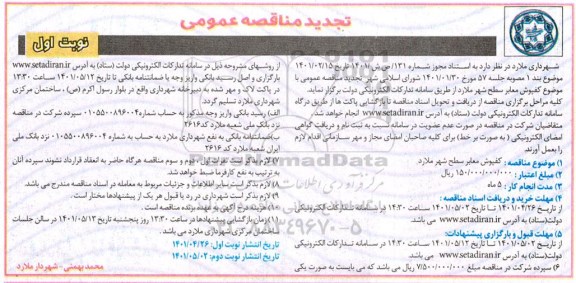 تجدید مناقصه عمومی
نوبت اول
شهرداری ملارد در نظر دارد به استناد مجوز شماره ۱۳۱/ تاریخ ۱۴۰۱/۰۲/۱۵
موضوع بند ۱ مصوبه جلسه ۵۷ مورخ ۱۴۰۱/۰۱/۳۰ شورای اسلامی شهر تجدید مناقصه عمومی با
موضوع کفپوش معابر سطح شهر ملارد از طریق سامانه تدارکات الکترونیکی دولت برگزار نماید.
کلیه مراحل برگزاری مناقصه از دریافت و تحویل اسناد مناقصه تا بازگشایی پاکت ها از طریق درگاه
سامانه تدارکات الکترونیکی دولت (ستاد) به آدرس www.setadiran.ir انجام خواهد شد.
متقاضیان شرکت در مناقصه در صورت عدم عضویت در سامانه نسبت به ثبت نام و دریافت گواهی
امضای الکترونیکی (به صورت برخط) برای کلیه صاحبان امضای مجاز و مهر سازمانی اقدام لازم
را بعمل آورند.
۱) موضوع مناقصه: کفپوش معابر سطح شهر ملارد
۲) مبلغ اعتبار: ۱۵۰/۰۰۰/۰۰۰/۰۰۰ ریال
۳) مدت انجام کار: ۵ ماه
۴) مهلت خرید و دریافت اسناد مناقصه:
از تاریخ ۱۴۰۱/۰۴/۲۶ تا تاریخ ۱۴۰۱/۰۵/۰۲ ساعت ۱۴:۳۰ در سامانه تدارکات الکترونیکی
دولت(ستاد) به آدرس www.setadiran.ir می باشد.
۵) مهلت قبول و بارگزاری پیشنهادات:
از تاریخ ۱۴۰۱/۰۵/۰۲ تا تاریخ ۱۴۰۱/۰۵/۱۲ ساعت ۱۴:۳۰ در سامانه تدارکات الکترونیکی
دولت(ستاد) به آدرس www.setadiran.ir می باشد.
۶) سپرده شرکت در مناقصه مبلغ ۷/۵۰۰/۰۰۰/۰۰۰ ریال می باشد که می بایست به صورت یکی
از روشهای مشروحه ذیل در سامانه تدارکات الکترونیکی دولت (ستاد) به آدرس www.setadiran.ir
بارگزاری و اصل رسید بانکی واریز وجه یا ضمانتنامه بانکی تا تاریخ ۱۴۰۱/۰۵/۱۲ ساعت ۱۳:۳۰
در پاکت لاک و مهر شده به دبیرخانه شهرداری واقع در بلوار رسول اکرم (ص) ، ساختمان مرکزی
شهرداری ملارد تسلیم گردد.
الف) رسید بانکی واریز وجه مذکور به حساب شماره ۰۱۰۵۵۰۰۸۹۶۰۰۴ سپرده شرکت در مناقصه
نزد بانک ملی شعبه ملارد کد ۲۶۱۶
ب)ضمانتنامه بانکی به نفع شهرداری ملارد به حساب به شماره ۰۱۰۵۵۰۰۸۹۶۰۰۴ نزد بانک ملی
ایران شعبه ملارد کد ۲۶۱۶
۷) لازم بذکر است برنده اول، دوم و سوم مناقصه هرگاه حاضر به انعقاد قرارداد نشوند سپرده آنان
به ترتیب به نفع کارفرما ضبط خواهد شد.
۸) لازم بذکر است سایر اطلاعات و جزئیات مربوط به معامله در اسناد مناقصه مندرج می باشد.
۹) لازم بذکر است شهرداری در رد یا قبول هر یک از پیشنهادها مختار است.
۱۰) هزینه درج آگهی به عهده برنده مناقصه است.
۱۱) زمان بازگشایی پیشنهادها در ساعت ۱۳:۳۰ روز پنجشنبه تاریخ ۱۴۰۱/۰۵/۱۳ در سالن جلسات
ساختمان مرکزی شهرداری ملارد می باشد.
تاریخ انتشار نوبت اول: ۱۴۰۱/۰۴/۲۶
تاریخ انتشار نوبت دوم: ۱۴۰۱/۰۵/۰۲
محمد بهمنی - شهردار ملارد